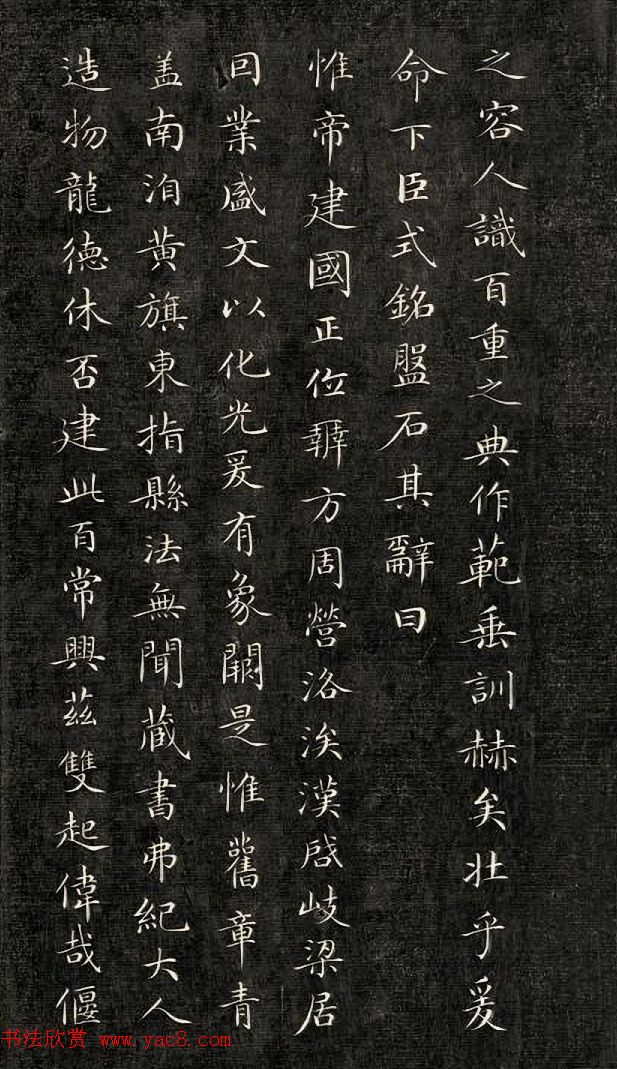 之容人識百重之典作範垂訓赫矣壯乎爰
命下臣式銘盤石其辭曰
惟帝建國正位辨方周營洛涘漢啟岐梁居
囙業盛文以化光爰有象闕是惟舊章青
盖南洎黄旗東指縣法無聞蔵書弗紀大人
造物龍德休否建此百常興茲雙起偉哉偃
书法欣赏 www.yac8.com